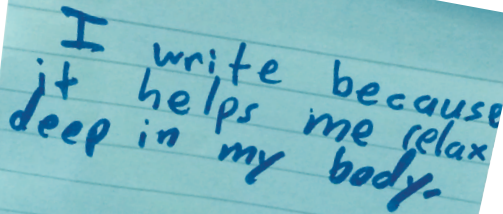 I write because
it helps me relax
deep in my body.